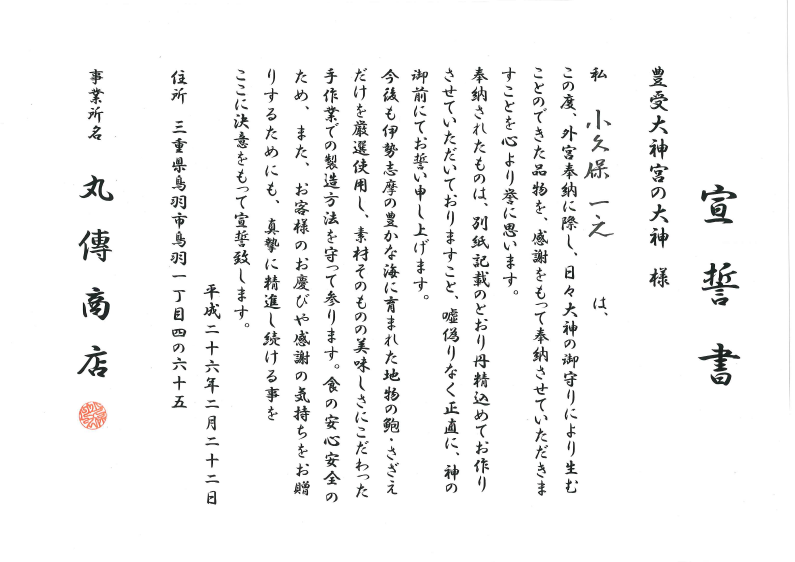 宣誓書
豊受大神宮の大神 様
私 小久保 一之 は、
この度、外宮奉納に際し、日々大神の御守りにより生む
ことのできた品物を、感謝をもって奉納させていただきま
すことを心より誉に思います。
奉納されたものは、別紙記載のとおり丹精込めてお作り
させていただいておりますこと、嘘偽りなく正直に、神の
御前にてお誓い申し上げます。
今後も伊勢志摩の豊かな海に育まれた地物の鮑・さざえ
だけを厳選使用し、素材そのものの美味しさにこだわった
手作業での製造方法を守って参ります。食の安心安全の
ため、また、お客様のお慶びや感謝の気持ちをお贈
りするためにも、真摯に精進し続ける事を
ここに決意をもって宣誓致します。
平成二十六年二月二十二日
住所 三重県鳥羽市鳥羽一丁目四の六十五
事業所名 丸傳商店